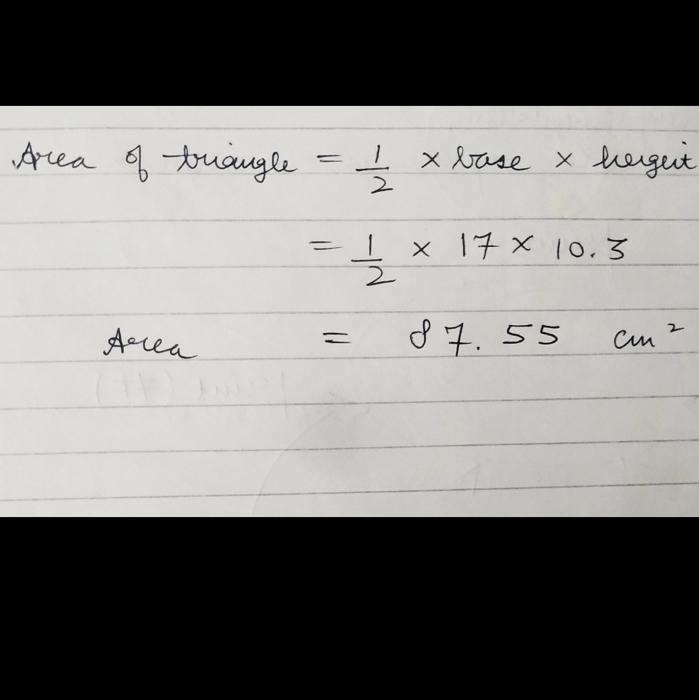 Area of triangle = 1/2 × base × hergeit
= 1/2 × 17 × 10.3
Area = 87.55 cm²